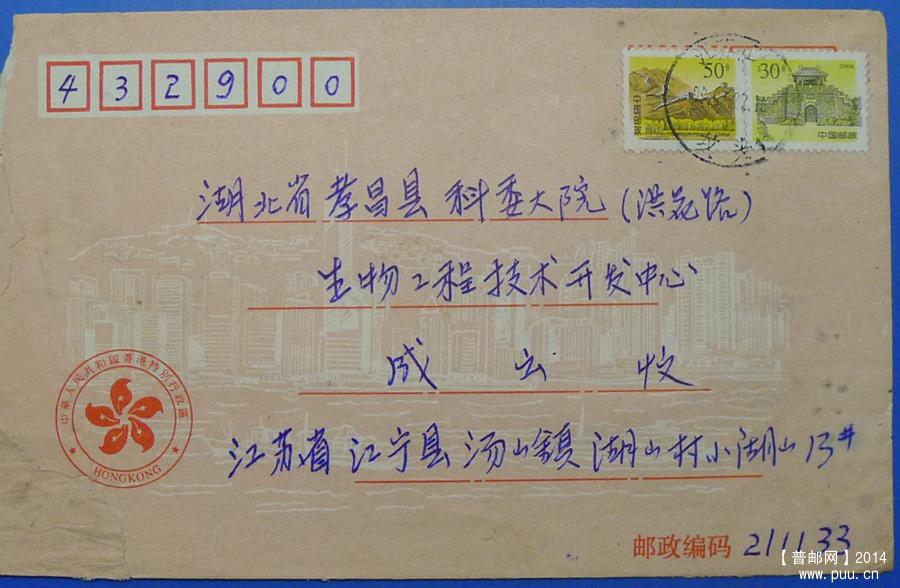 432900
50分
中国邮政
30分
CHINA
中国邮政
湖北省孝昌县科委大院(洪花路)
生物工程技术开发中心
成 云 收
中華人民共和國香港特別行政區
HONGKONG
江苏省江宁县汤山镇湖山村小湖山13#
邮政编码 211133
【普邮网】2014
www.puu.cn